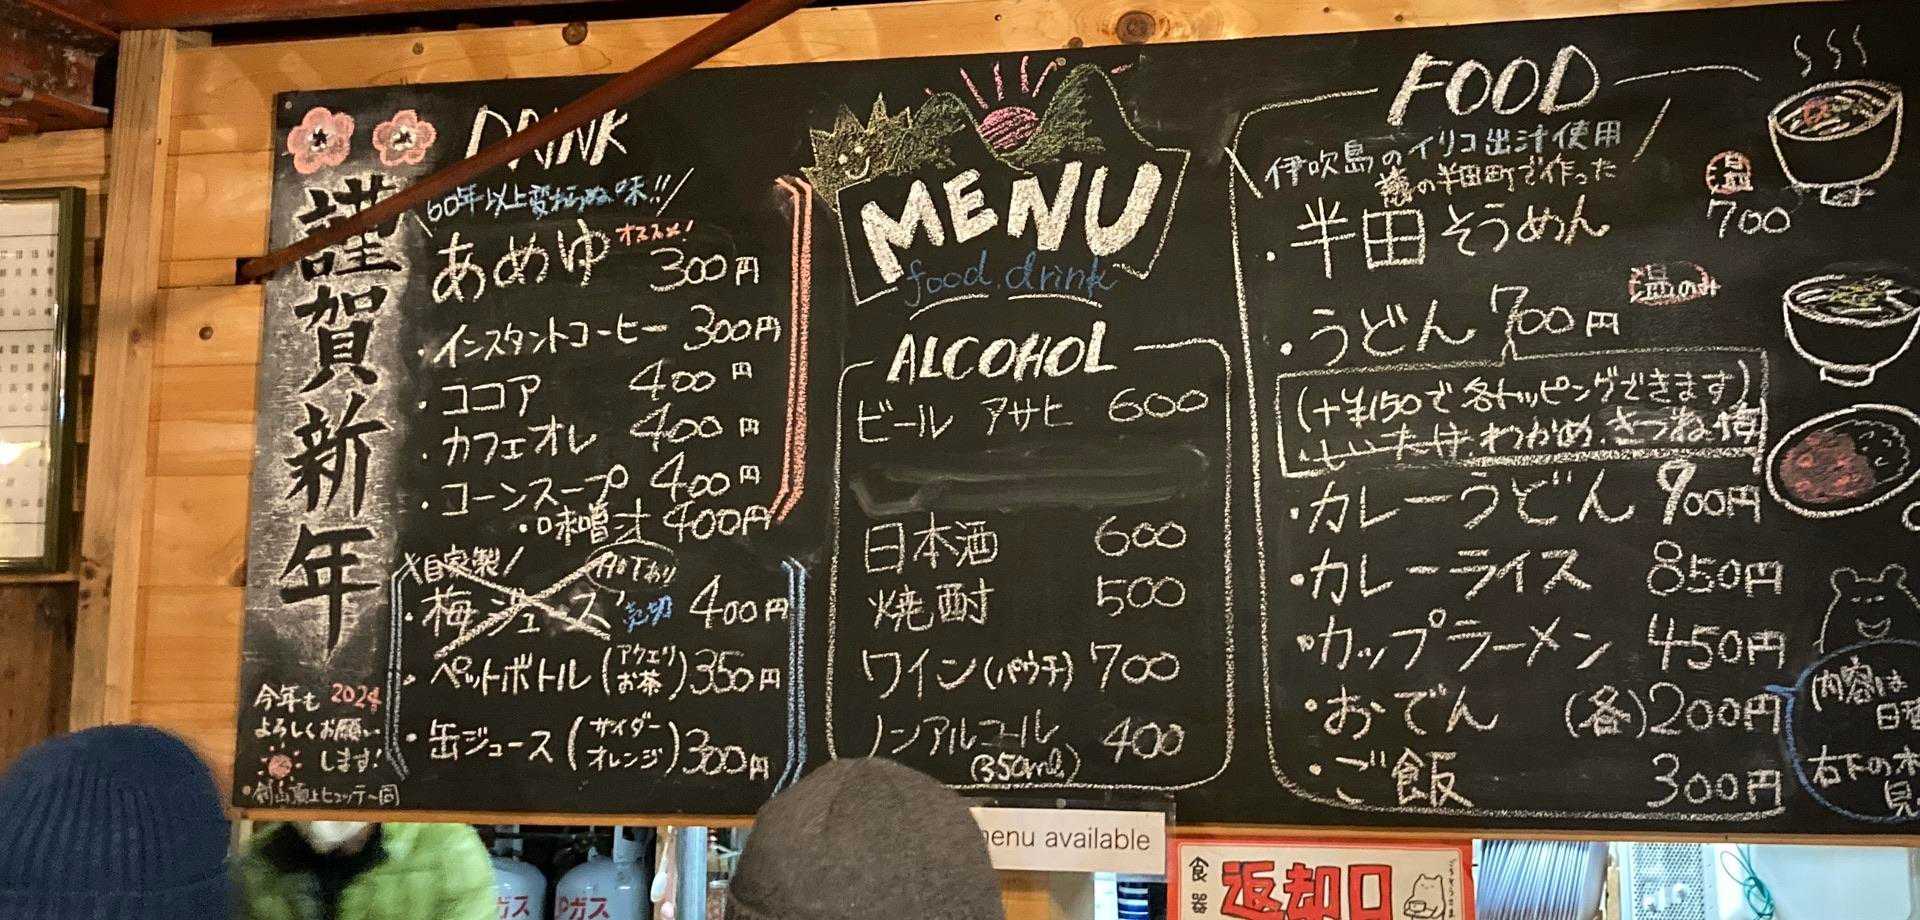 謹賀新年
今年も 2024
よろしくお願い
します!
剣山頂上ヒュッテ一同
DRINK
60年以上変わらぬ味!!
あめゆ オススメ! 300円
・インスタントコーヒー 300円
・ココア 400円
・カフェオレ 400円
・コーンスープ 400円
・味噌汁 400円
自家製 HOTあり
・梅ジュース 売切 400円
・ペットボトル(アクエリ お茶)350円
・缶ジュース(サイダー オレンジ)300円
MENU
food.drink
ALCOHOL
ビール アサヒ 600
日本酒 600
焼酎 500
ワイン(パウチ) 700
ノンアルコール 400
(350ml)
FOOD
伊吹島のイリコ出汁使用
の半田町で作った
・半田そうめん 温 700
・うどん 700円 温のみ
(+¥150で各トッピングできます)
・しいたけ.わかめ.きつね.
・カレーうどん 900円
・カレーライス 850円
・カップラーメン 450円
・おでん (各)200円
・ご飯 300円
(内容は
日替
右下の木
見
enu available
食器
返却口
ガス
LPガス